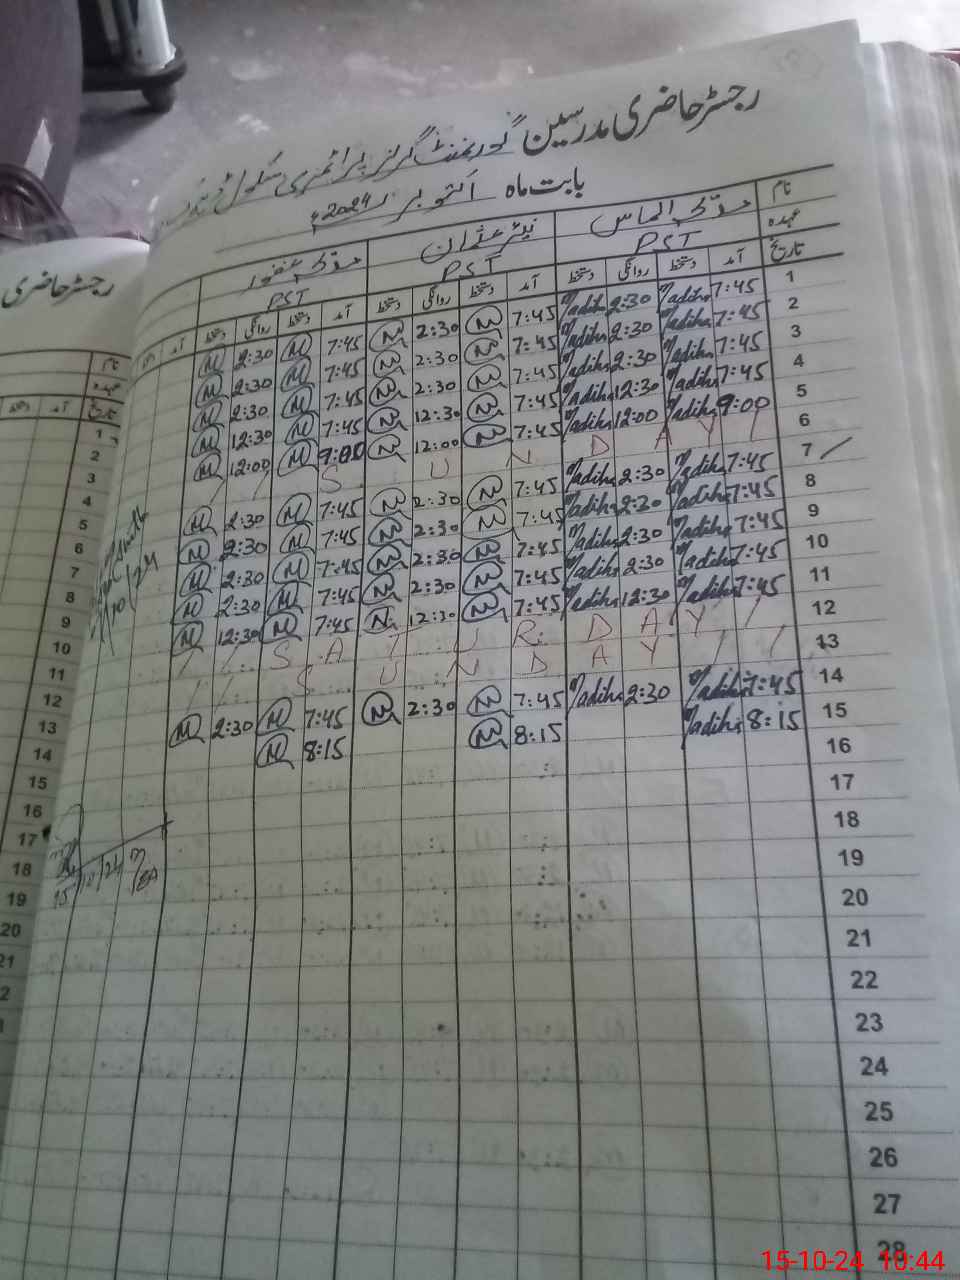 رجسٹر حاضری مدرسین گورنمنٹ گرلز پرائمری سکول
بابت ماہ اکتوبر 2024ء
نام
عہدہ PST PST PST
تاریخ آمد دستخط روانگی دستخط آمد دستخط روانگی دستخط آمد دستخط روانگی دستخط آمد دستخط
1 7:45 Madiha 2:30 Madiha 7:45 N 2:30 N 7:45 M 2:30 M
2 7:45 Madiha 2:30 Madiha 7:45 N 2:30 N 7:45 M 2:30 M
3 7:45 Madiha 2:30 Madiha 7:45 N 2:30 N 7:45 M 2:30 M
4 7:45 Madiha 12:30 Madiha 7:45 N 12:30 N 7:45 M 12:30 M
5 9:00 Madiha 12:00 Madiha 7:45 N 12:00 N 9:00 M 12:00 M
6 SUNDAY
7 7:45 Madiha 2:30 Madiha 7:45 N 2:30 N 7:45 M 2:30 M
8 7:45 Madiha 2:30 Madiha 7:45 N 2:30 N 7:45 M 2:30 M
9 7:45 Madiha 2:30 Madiha 7:45 N 2:30 N 7:45 M 2:30 M
10 7:45 Madiha 2:30 Madiha 7:45 N 2:30 N 7:45 M 2:30 M
11 7:45 Madiha 12:30 Madiha 7:45 N 12:30 N 7:45 M 12:30 M
12 SATURDAY
13 SUNDAY
14 7:45 Madiha 2:30 Madiha 7:45 N 2:30 N 7:45 M 2:30 M
15 8:15 Madiha 8:15 N 8:15 M
16
17
18
19
20
21
22
23
24
25
26
27
28
رجسٹر حاضری
نام
عہدہ
تاریخ
آمد
1
2
3
4
5
6
7
8
9
10
11
12
13
14
15
16
17
18
19
20
21
15-10-24 10:44